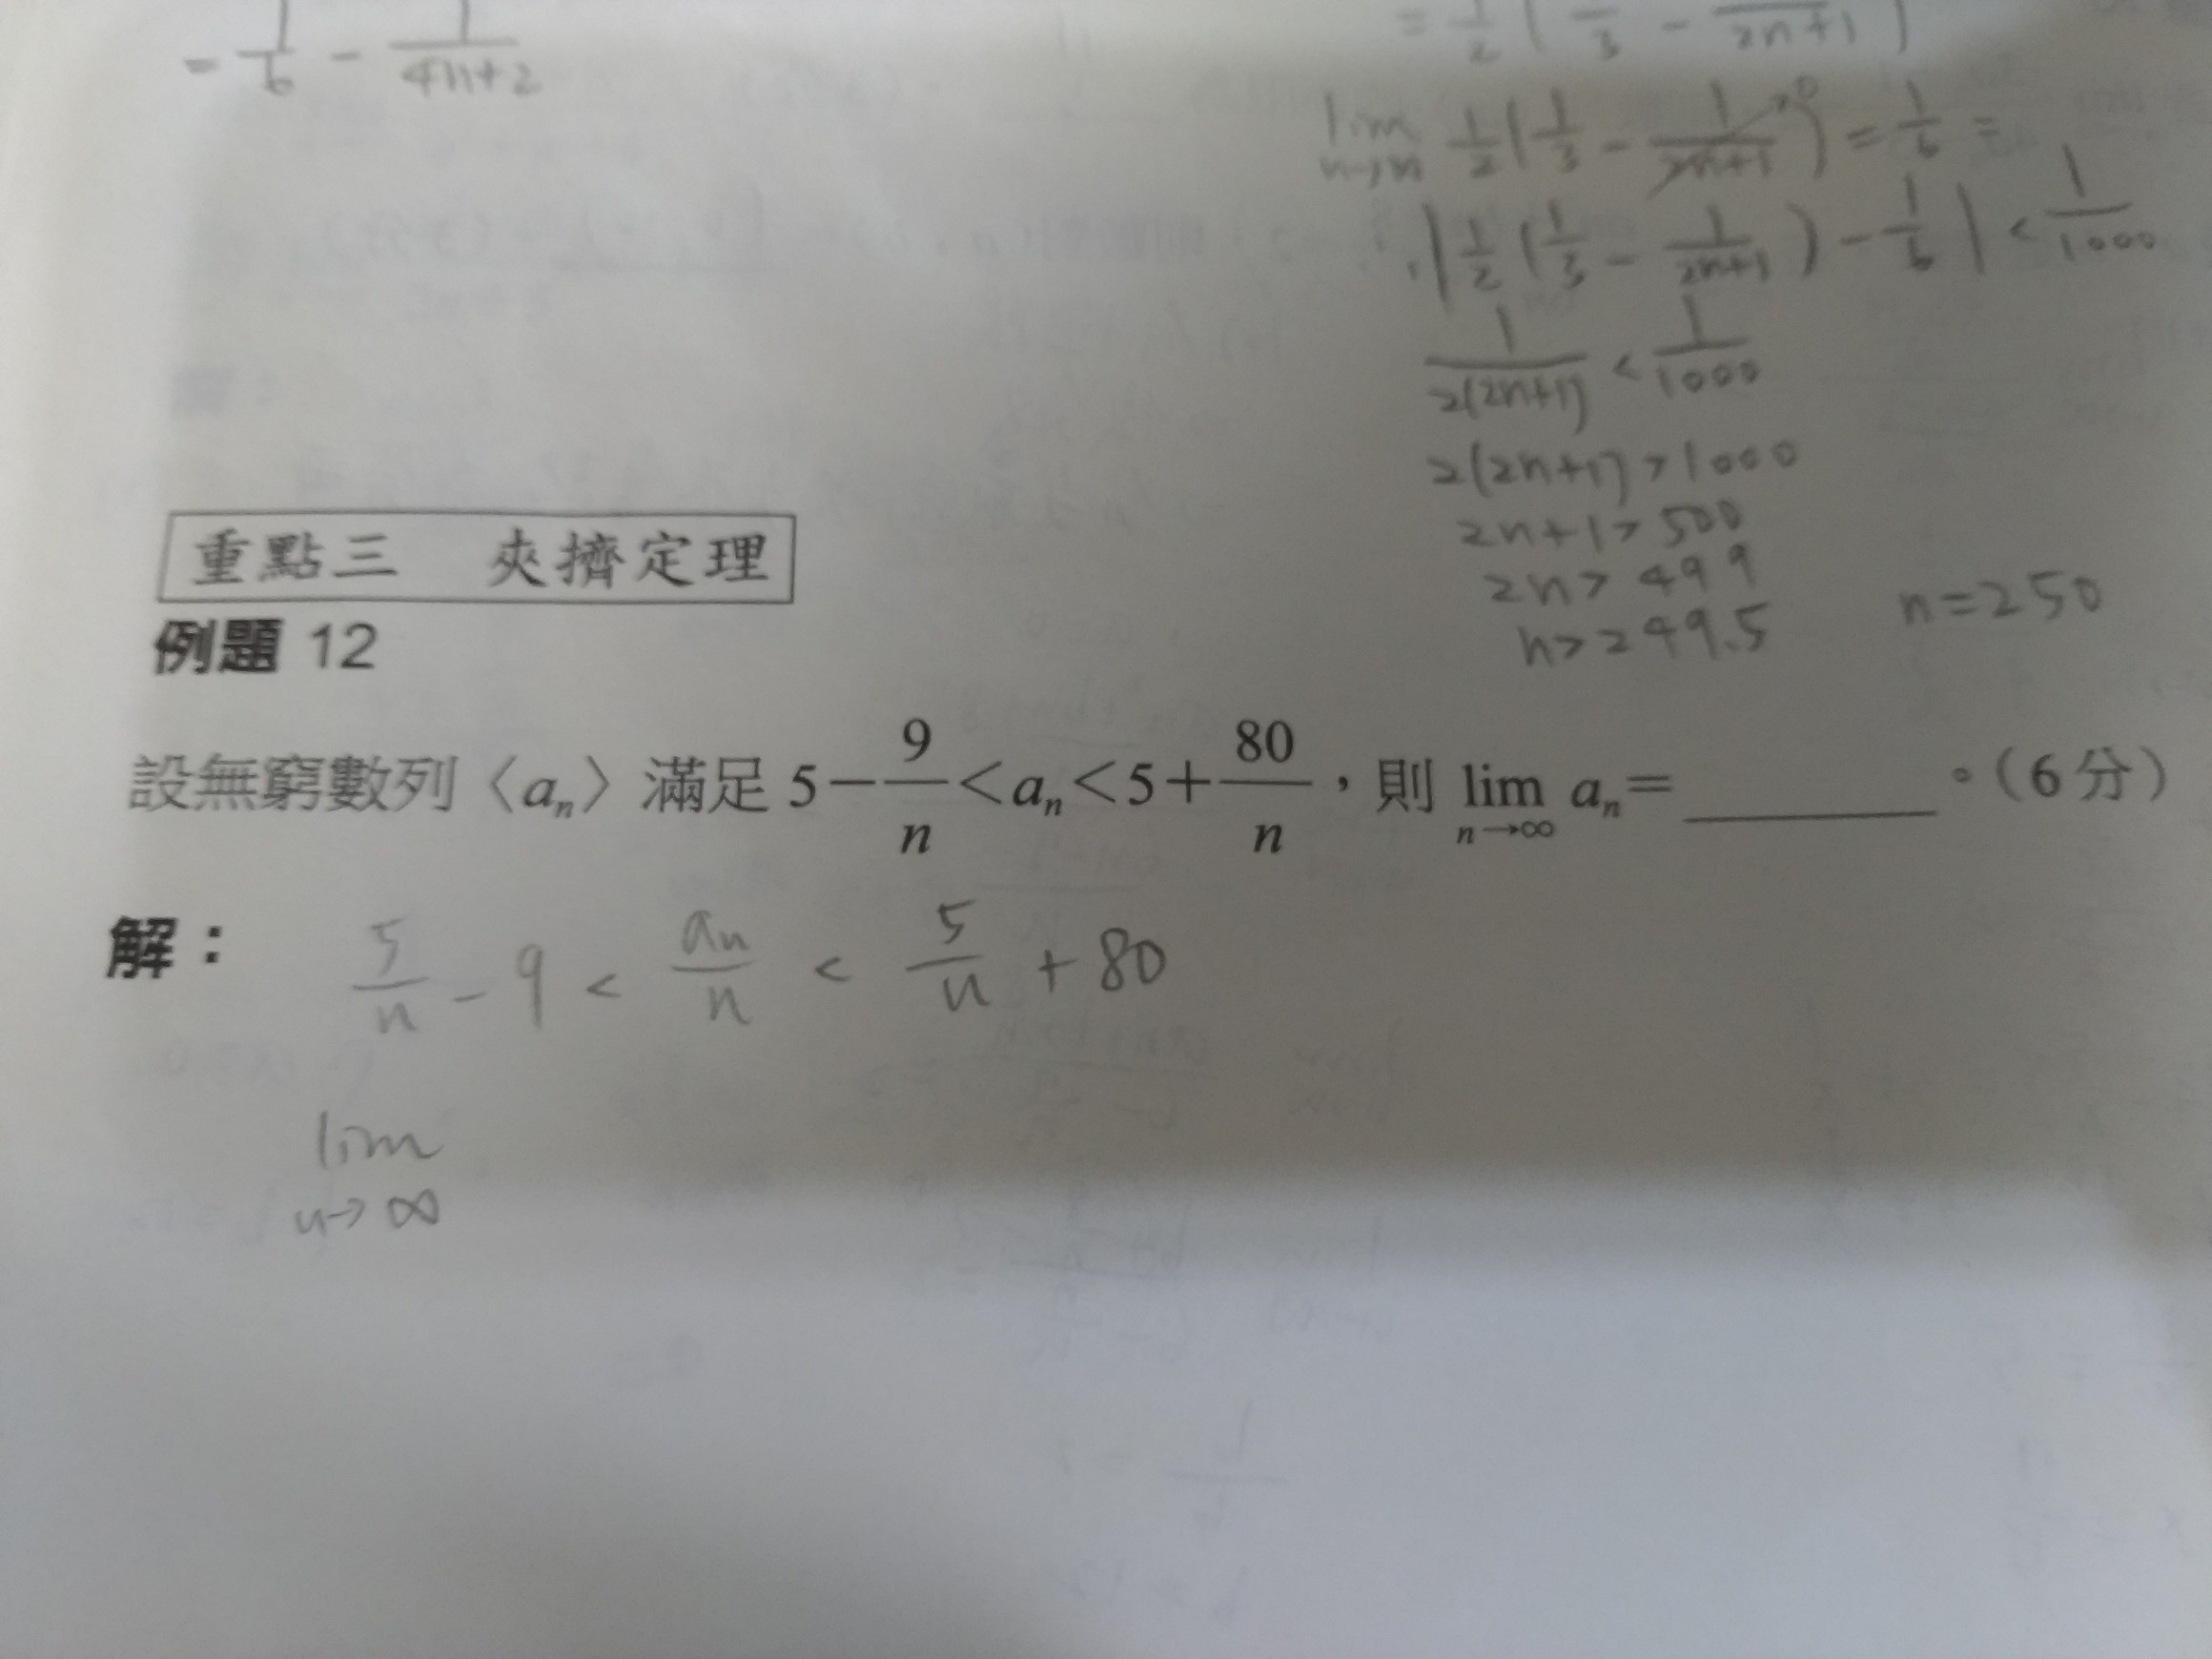 - 1/6 - 1/(4n+2)
= 1/2 ( 1/3 - 1/(2n+1) )
lim n→∞ 1/2 ( 1/3 - 1/(2n+1) →0 ) = 1/6 =
| 1/2 ( 1/3 - 1/(2n+1) ) - 1/6 | < 1/1000
1/(2(2n+1)) < 1/1000
2(2n+1) > 1000
2n+1 > 500
2n > 499
n > 249.5 n=250
重點三 夾擠定理
例題 12
設無窮數列〈aₙ〉滿足 5－9/n＜aₙ＜5＋80/n，則 lim n→∞ aₙ＝______。（6 分）
解： 5/n - 9 < aₙ/n < 5/n + 80
lim n→∞